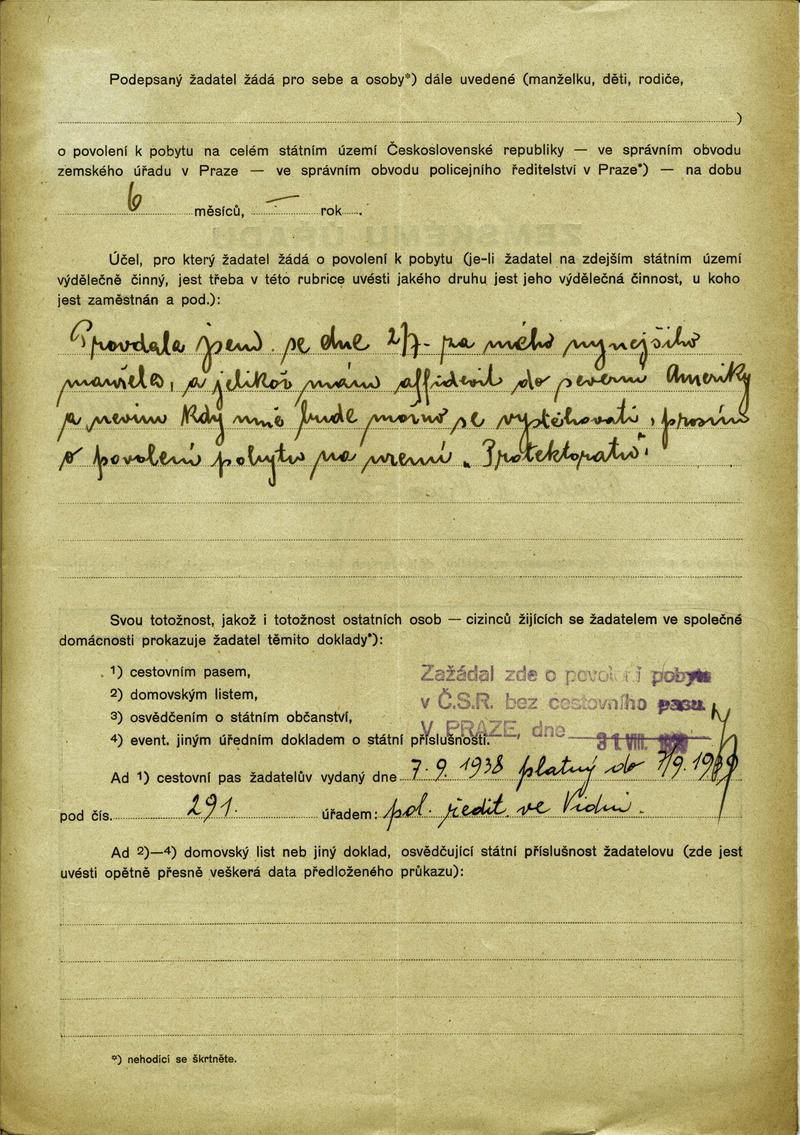 Podepsaný žadatel žádá pro sebe a osoby*) dále uvedené (manželku, děti, rodiče,
)
o povolení k pobytu na celém státním území Československé republiky — ve správním obvodu
zemského úřadu v Praze — ve správním obvodu policejního ředitelství v Praze*) — na dobu
6 měsíců, — rok
Účel, pro který žadatel žádá o povolení k pobytu (je-li žadatel na zdejším státním území
výdělečně činný, jest třeba v této rubrice uvésti jakého druhu jest jeho výdělečná činnost, u koho
jest zaměstnán a pod.):
Provdala jsem se dne 2/7 za mého nynejšiho
manžela, a jelikož mám affidevit do severni Ameriky
a nevim kdy mně bude možno se vystěhovati, prosim
o povoleni pobytu na uzemi „Protektoratu"
Svou totožnost, jakož i totožnost ostatních osob — cizinců žijících se žadatelem ve společné
domácnosti prokazuje žadatel těmito doklady*):
¹) cestovním pasem,
²) domovským listem,
³) osvědčením o státním občanství,
⁴) event. jiným úředním dokladem o státní příslušnosti.
Zažádal zde o povolení pobytu
v Č.S.R. bez cestovního pasu.
V PRAZE, dne 31 VIII.
Ad ¹) cestovní pas žadatelův vydaný dne 7. 9. 1938 platný do 7/9. 1939
pod čís. 291. úřadem: pol. ředit. ve Vidni.
Ad ²)—⁴) domovský list neb jiný doklad, osvědčující státní příslušnost žadatelovu (zde jest
uvésti opětně přesně veškerá data předloženého průkazu):
*) nehodící se škrtněte.